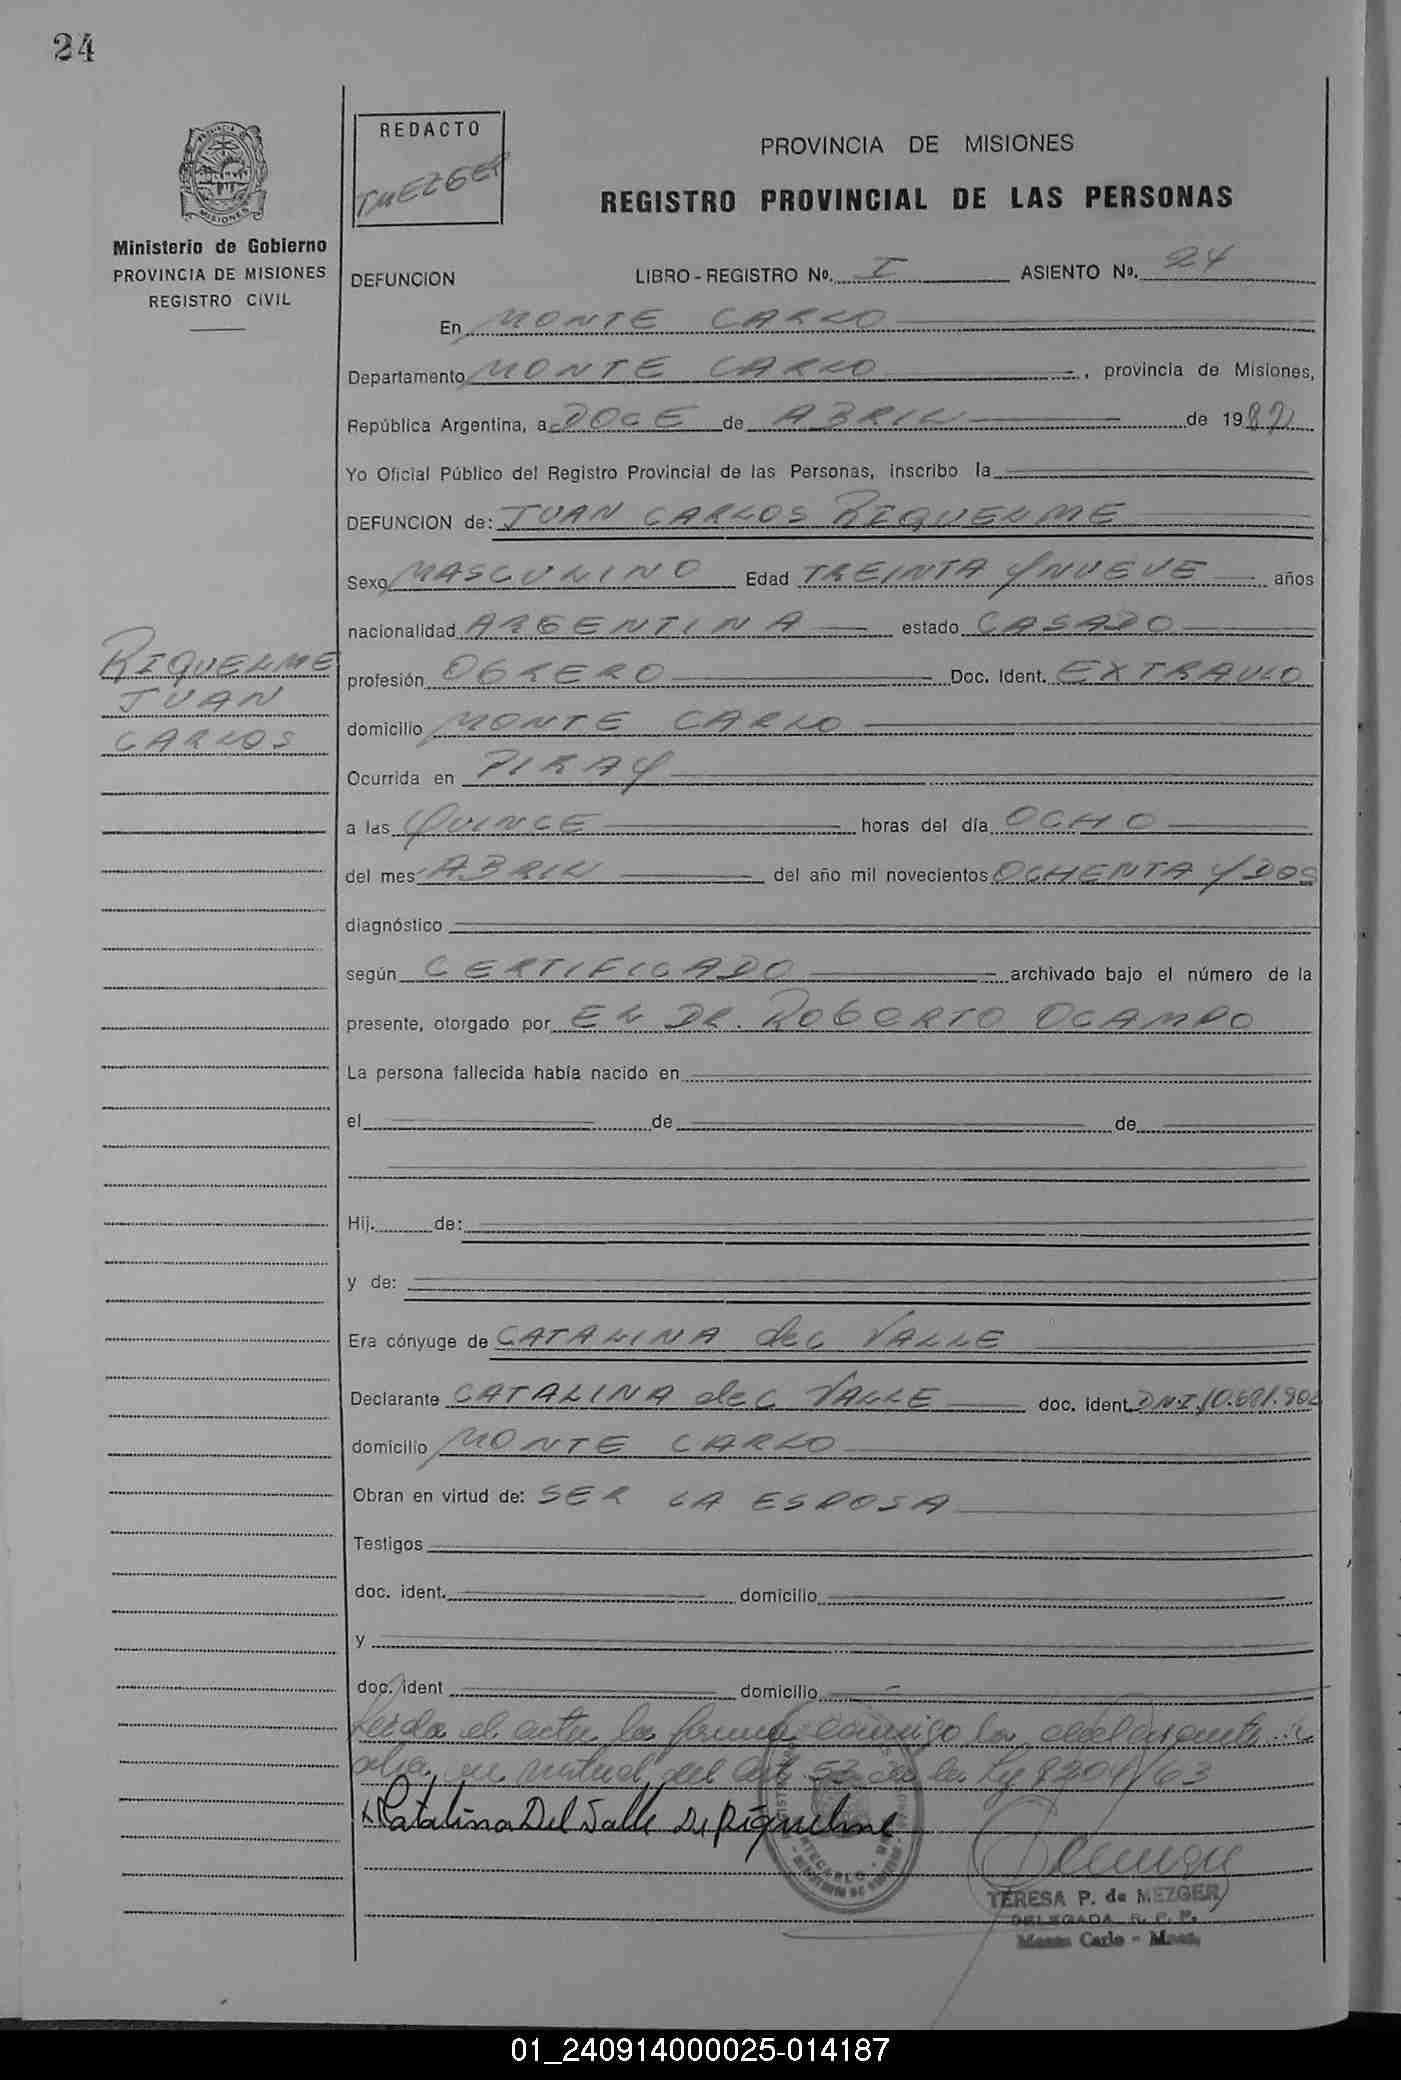 24
REDACTO
T.MEZGER
PROVINCIA DE MISIONES
REGISTRO PROVINCIAL DE LAS PERSONAS
MISIONES
Ministerio de Gobierno
PROVINCIA DE MISIONES
REGISTRO CIVIL
DEFUNCION LIBRO - REGISTRO Nº. I ASIENTO Nº. 24
En MONTE CARLO
Departamento MONTE CARLO, provincia de Misiones,
República Argentina, a DOCE de ABRIL de 1982
Yo Oficial Público del Registro Provincial de las Personas, inscribo la
DEFUNCION de: JUAN CARLOS RIQUELME
Sexo MASCULINO Edad TREINTA Y NUEVE años
nacionalidad ARGENTINA estado CASADO
RIQUELME
JUAN
CARLOS
profesión OBRERO Doc. Ident. EXTRAVIO
domicilio MONTE CARLO
Ocurrida en PIRAY
a las QUINCE horas del día OCHO
del mes ABRIL del año mil novecientos OCHENTA Y DOS
diagnóstico
según CERTIFICADO archivado bajo el número de la
presente, otorgado por EL DR. ROBERTO OCAMPO
La persona fallecida había nacido en
el de de
Hij. de:
y de:
Era cónyuge de CATALINA del VALLE
Declarante CATALINA del VALLE doc. ident. DNI 10.691.
domicilio MONTE CARLO
Obran en virtud de: SER LA ESPOSA
Testigos
doc. ident. domicilio
y
doc. ident domicilio
Leida el acta la firma conmigo la declarante
en virtud del Art 53 de la Ley 8204/63
Catalina Del Valle De Riquelme
TERESA P. de MEZGER
DELEGADA R. P. P.
Monte Carlo - Mnes.
01_240914000025-014187